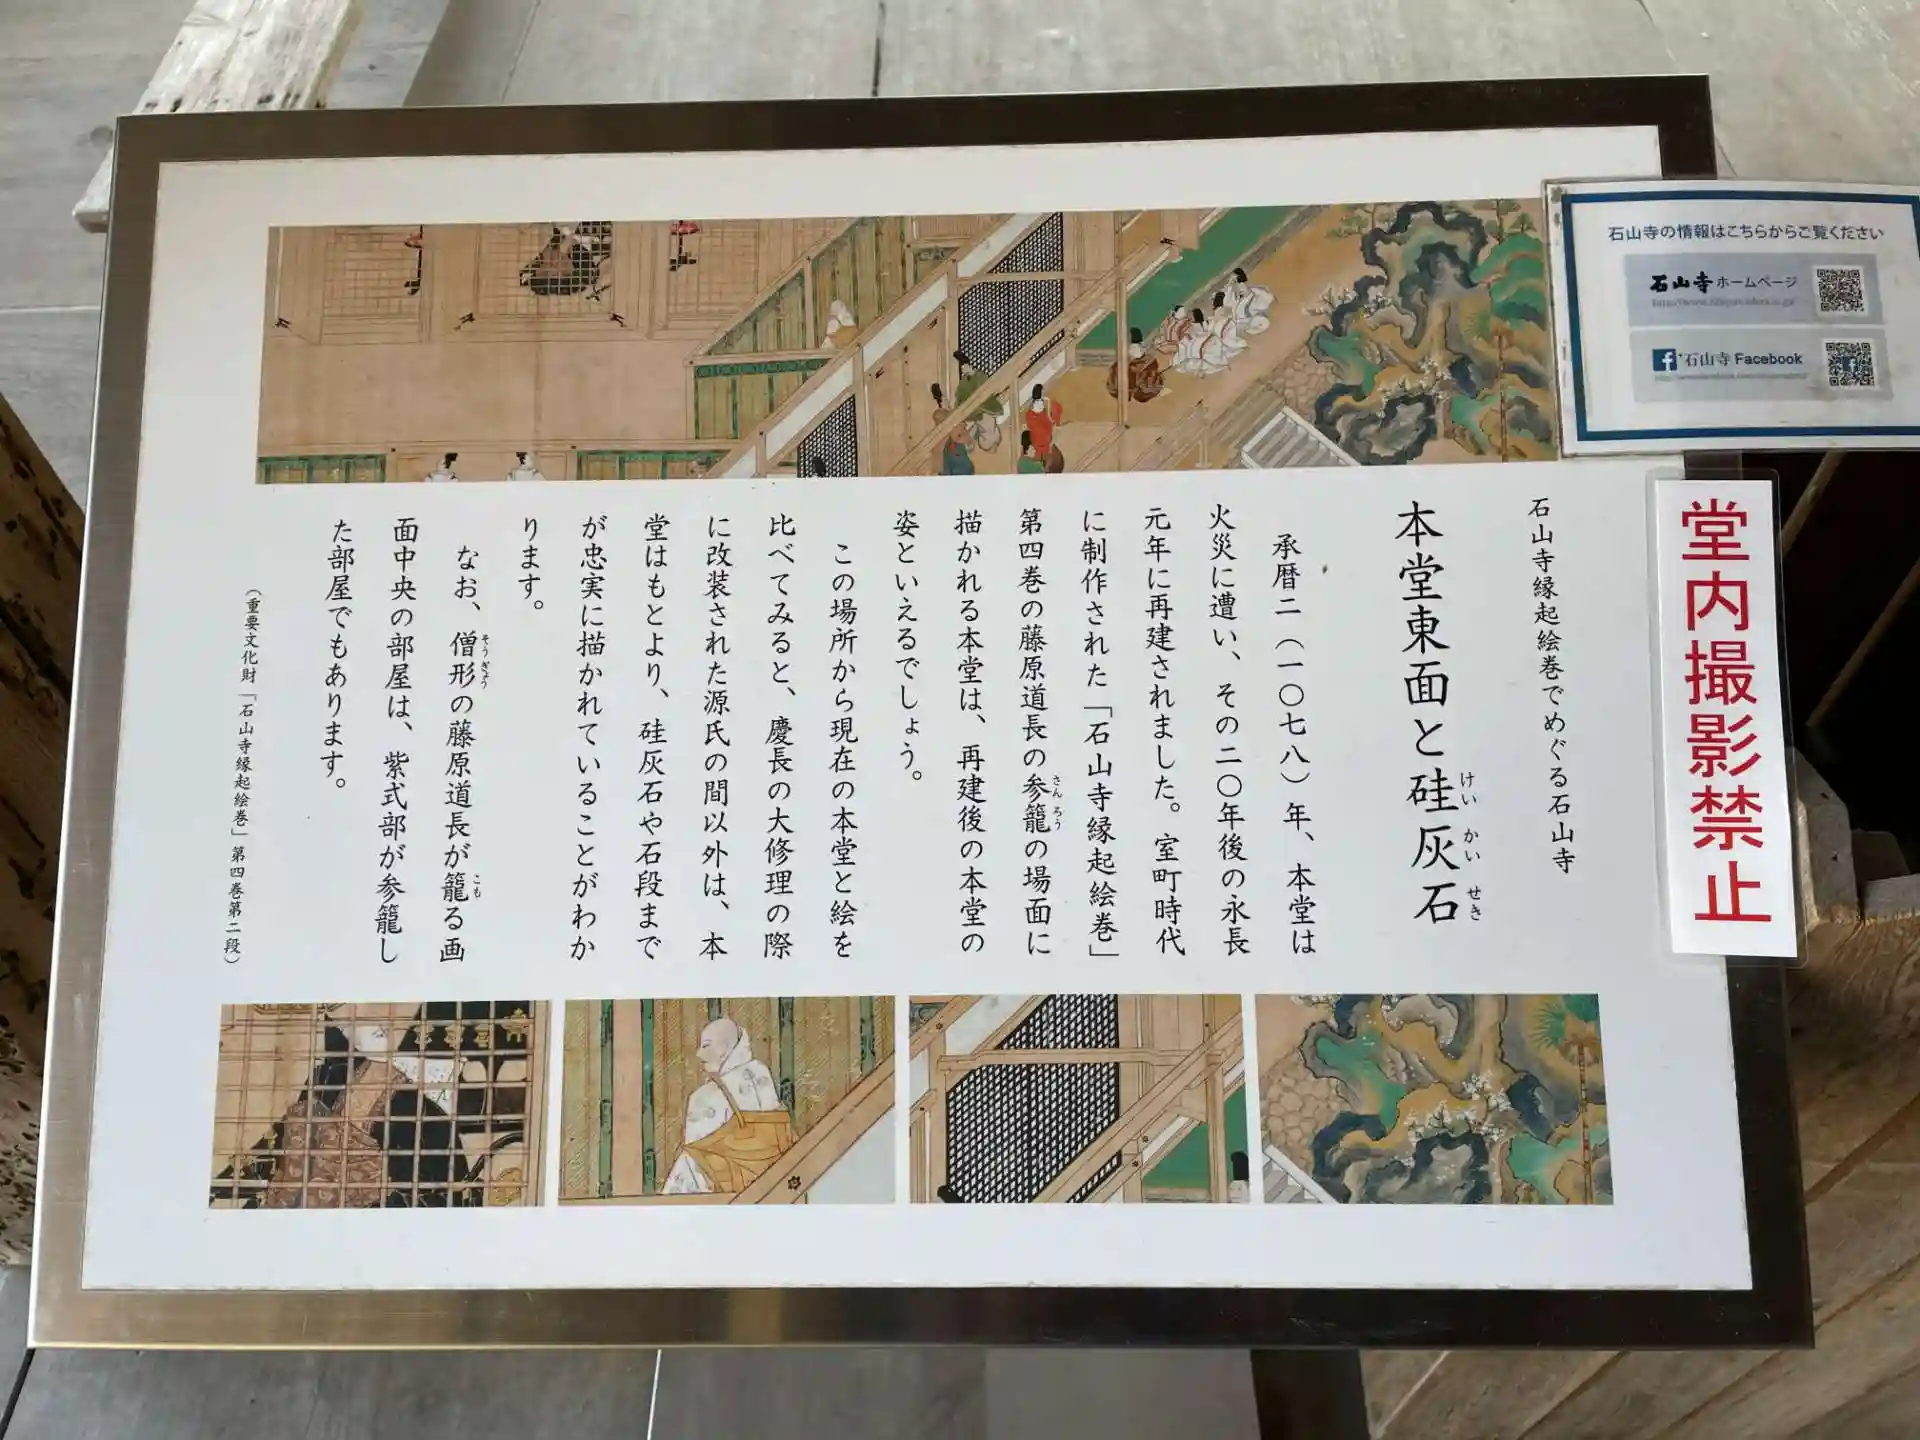 石山寺縁起絵巻でめぐる石山寺
本堂東面と硅灰石
けい かい せき
承暦二（一〇七八）年、本堂は
火災に遭い、その二〇年後の永長
元年に再建されました。室町時代
に制作された「石山寺縁起絵巻」
第四巻の藤原道長の参籠の場面に
さん ろう
描かれる本堂は、再建後の本堂の
姿といえるでしょう。
この場所から現在の本堂と絵を
比べてみると、慶長の大修理の際
に改装された源氏の間以外は、本
堂はもとより、硅灰石や石段まで
が忠実に描かれていることがわか
ります。
なお、僧形の藤原道長が籠る画
そうぎょう
こも
面中央の部屋は、紫式部が参籠し
た部屋でもあります。
（重要文化財「石山寺縁起絵巻」第四巻第二段）
石山寺の情報はこちらからご覧ください
石山寺ホームページ
石山寺Facebook
堂内撮影禁止